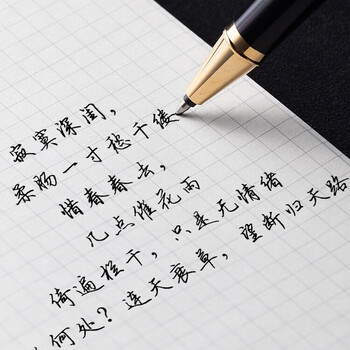 寂寞深闺，
柔肠一寸愁千缕
惜春春去，
几点催花雨
倚遍栏干，只是无情绪
何处？连天衰草，望断归天路